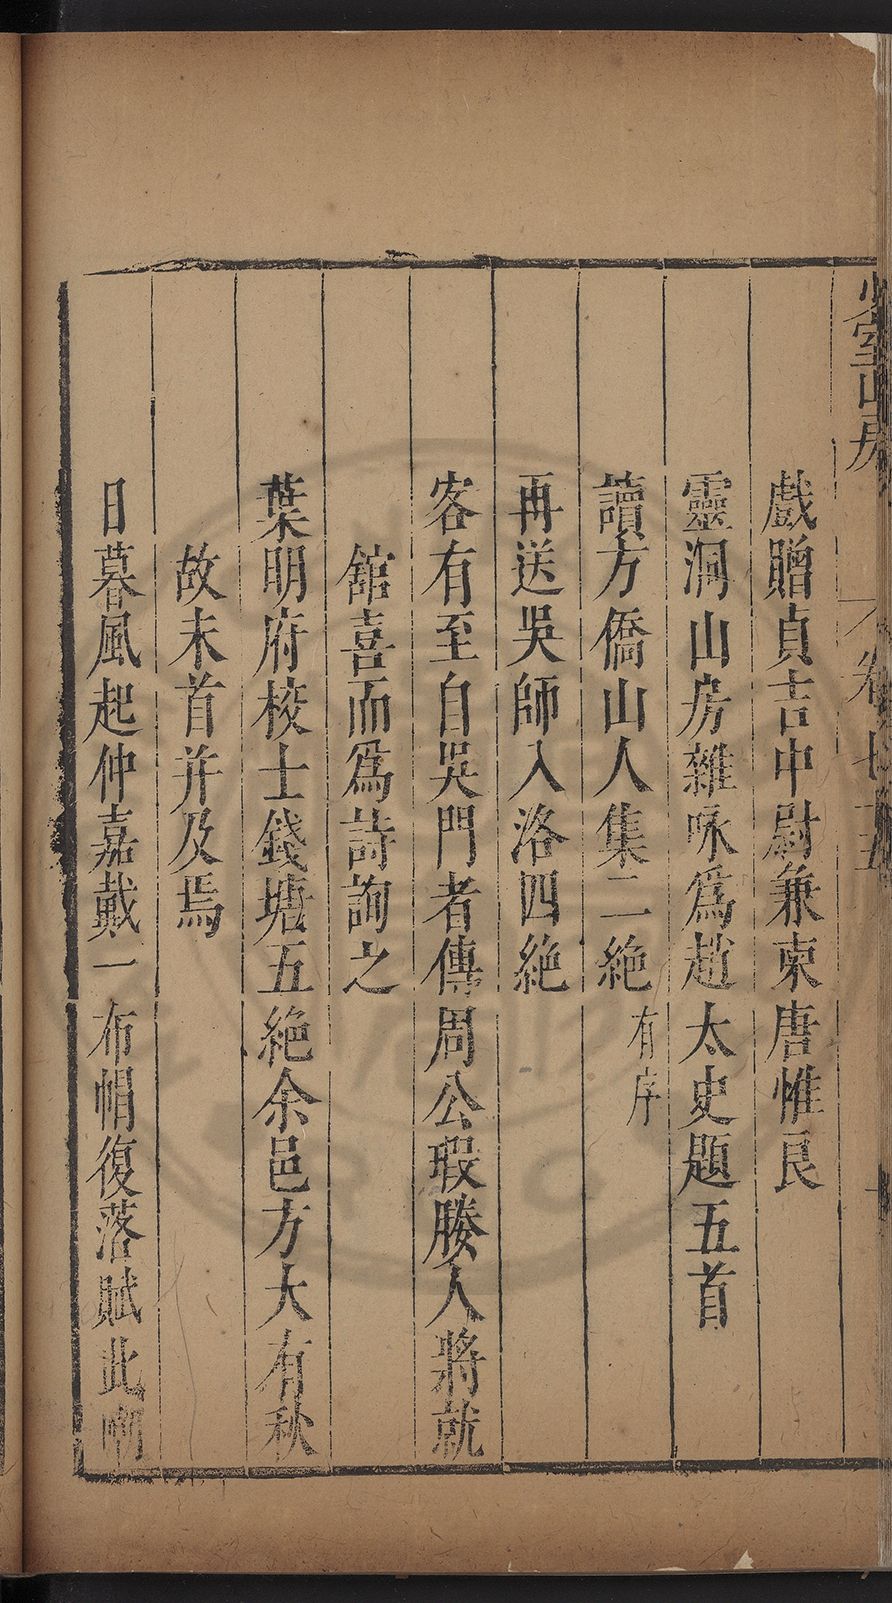 戲贈貞吉中尉兼柬唐惟良
靈洞山房雜咏爲趙太史題五首
讀方僑山人集二絶 有序
再送吳師入洛四絶
客有至自吳門者傳周公瑕媵人將就
舘喜而爲詩詢之
葉明府校士錢塘五絶余邑方大有秋
故末首并及焉
日暮風起仲嘉戴一布㡌復落賦此嘲